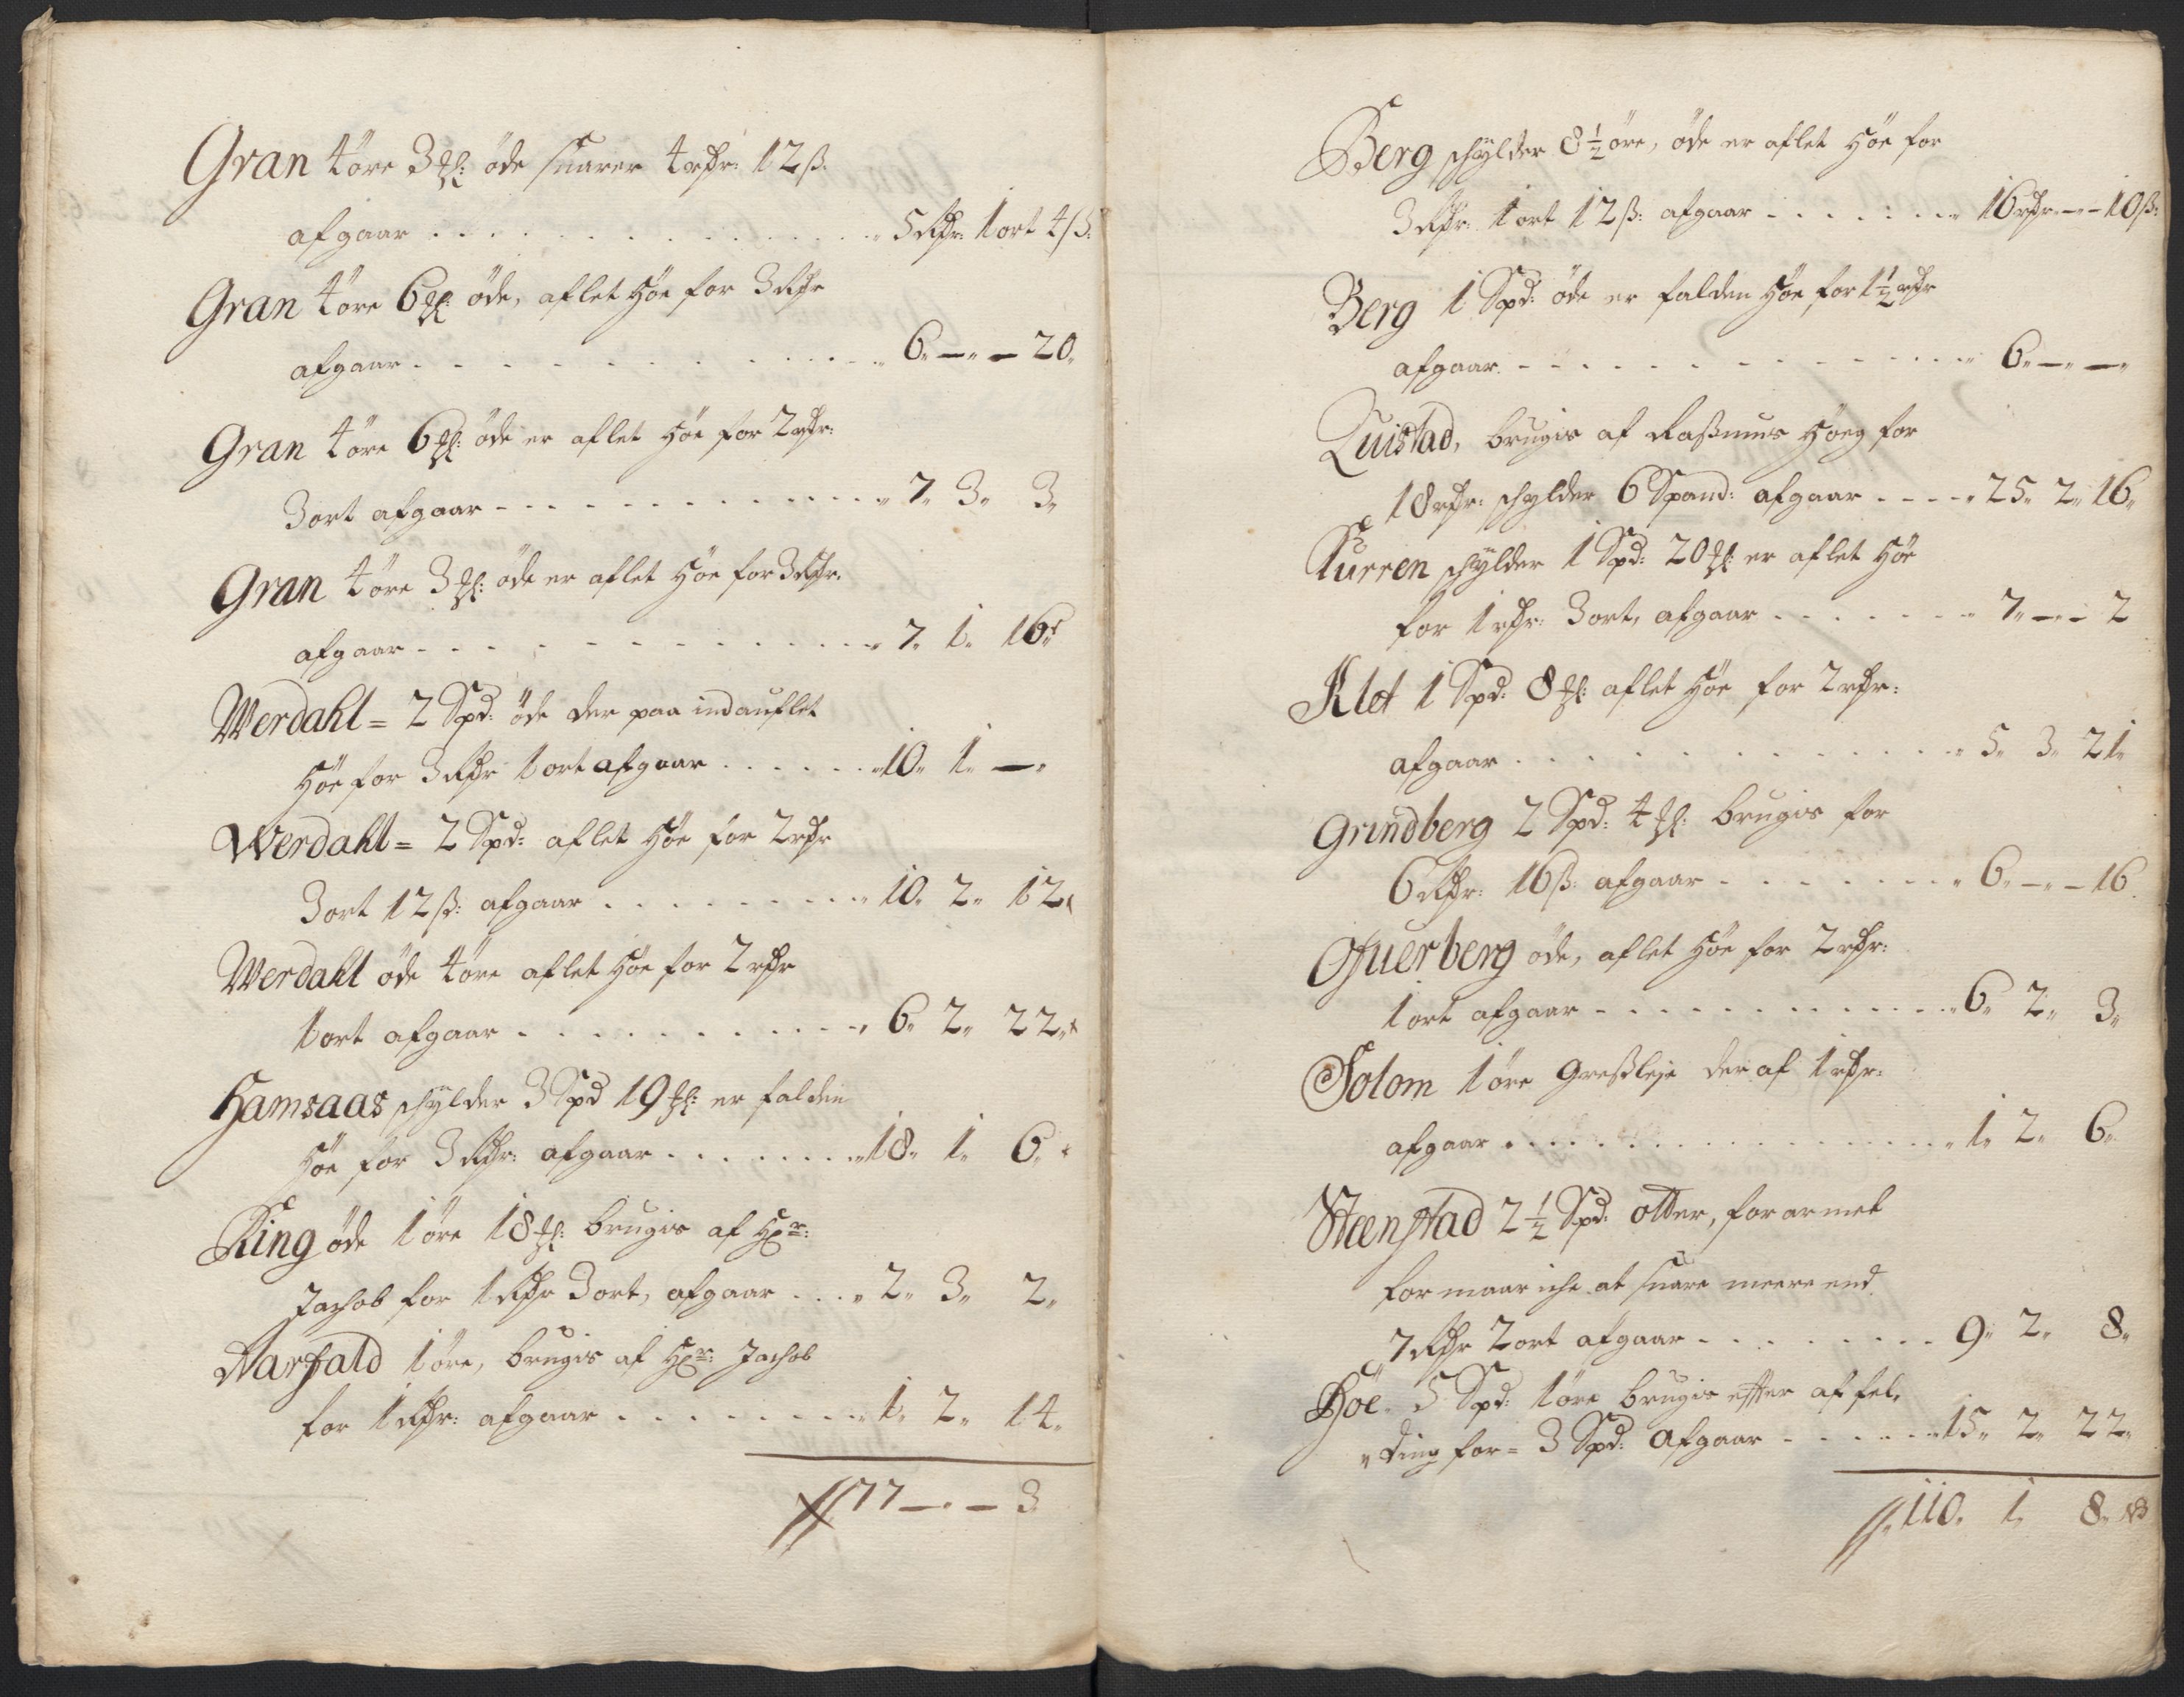 Gran 4 öre 3 ℔: öde suarer 4 rdr: 12 ß.
afgaar . . . . . . . 5 Rdr: 1 ort 4 ß:
Gran 4 öre 6 ℔: öde, aflet Höe for 3 Rdr
afgaar . . . . . . . 6. — . — 20.
Gran 4 öre 6 ℔: öde er aflet Höe for 2 rdr:
3 ort afgaar . . . . . . . 7. 3. 3.
Gran 4 öre 3 ℔: öde er aflet Höe for 3 Rdr.
afgaar . . . . . . . 7. 1. 16.
Werdahl = 2 Spd: öde der paa ind auflet
Höe for 3 Rdr 1 ort afgaar . . . . . . 10. 1. —.
Werdahl = 2 Spd: aflet Höe for 2 rdr
3 ort 12 ß: afgaar . . . . . . . 10. 2. 12.
Werdahl öde 4 öre aflet Höe for 2 rdr
1 ort afgaar . . . . . . . 6. 2. 22.
Hamsaas schylder 3 Spd 19 ℔: er falden
Höe for 3 Rdr: afgaar . . . . . . . 18. 1. 6.
Ring öde 1 öre 18 ℔: brugis af Hr:
Jachob for 1 Rdr 3 ort, afgaar . . . 2. 3. 2.
Aarfald 1 öre, brugis af Hr: Jachob
for 1 Rdr: afgaar . . . . . . . 1. 2. 14.
77 — . — 3
Berg schylder 8 1/2 öre, öde er aflet Höe for
3 Rdr: 1 ort 12 ß: afgaar . . . . . . . 16 rdr — . — 10 ß:
Berg 1 Spd: öde er falden Höe for 1 1/2 rdr
afgaar . . . . . . . 6. — . —.
Quistad, brugis af Rasmus Höeg for
18 rdr: schylder 6 Spand: afgaar . . . . 25. 2. 16.
Kurren schylder 1 Spd: 20 ℔: er aflet Höe
for 1 rdr: 3 ort, afgaar . . . . . . . 7. — . — 2
Klet 1 Spd: 8 ℔: aflet Höe for 2 rdr:
afgaar . . . . . . . 5. 3. 21.
Grindberg 2 Spd: 4 ℔: brugis for
6 Rdr: 16 ß: afgaar . . . . . . . 6. — . — 16.
Ofuerberg öde, aflet Höe for 2 rdr:
1 ort afgaar . . . . . . . 6. 2. 3.
Solom 1 öre Gressleje der af 1 rdr:
afgaar . . . . . . . 1. 2. 6.
Steenstad 2 1/2 Spd: otter, forarmet
formaar iche at suare meere end
7 Rdr 2 ort afgaar . . . . . . . 9. 2. 8.
Höe. 5 Spd: 1 öre brugis effter affel,
„ding for = 3 Spd: afgaar . . . . . . 15. 2. 22.
110. 1. 8.